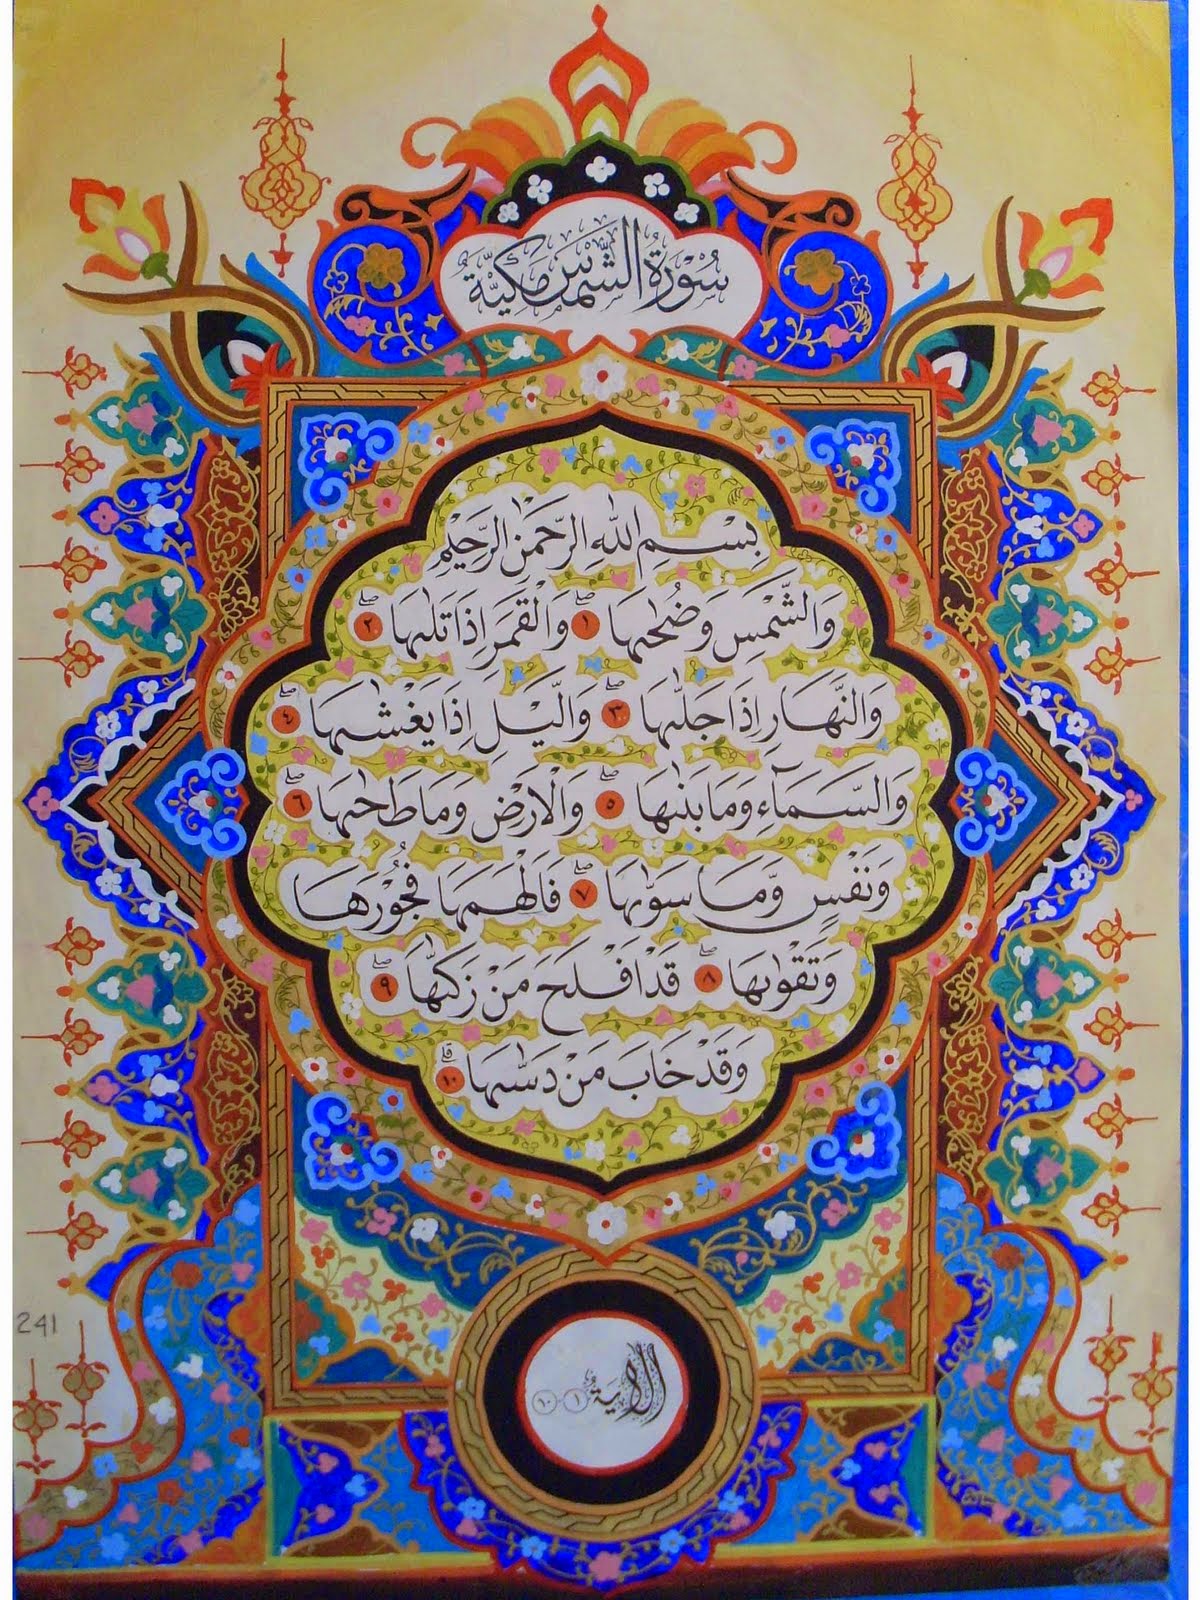 سُوْرَةُ الشَّمْسِ مَكِّيَّةٌ
بِسْمِ اللّٰهِ الرَّحْمٰنِ الرَّحِيْمِ
وَالشَّمْسِ وَضُحٰىهَا ۖ ١ وَالْقَمَرِ اِذَا تَلٰىهَا ۖ ٢
وَالنَّهَارِ اِذَا جَلّٰىهَا ۖ ٣ وَالَّيْلِ اِذَا يَغْشٰىهَا ۖ ٤
وَالسَّمَاۤءِ وَمَا بَنٰىهَا ۖ ٥ وَالْاَرْضِ وَمَا طَحٰىهَا ۖ ٦
وَنَفْسٍ وَّمَا سَوّٰىهَا ۖ ٧ فَاَلْهَمَهَا فُجُوْرَهَا
وَتَقْوٰىهَا ۖ ٨ قَدْ اَفْلَحَ مَنْ زَكّٰىهَا ۖ ٩
وَقَدْ خَابَ مَنْ دَسّٰىهَا ۗ ١٠
241
الاية ١ - ١٠